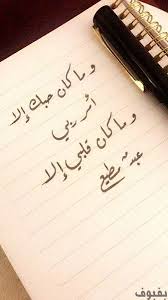 وما كان حبك إلا
أمر ربي
وما كان قلبي إلا
عبدٌ مطيع
بفبوف